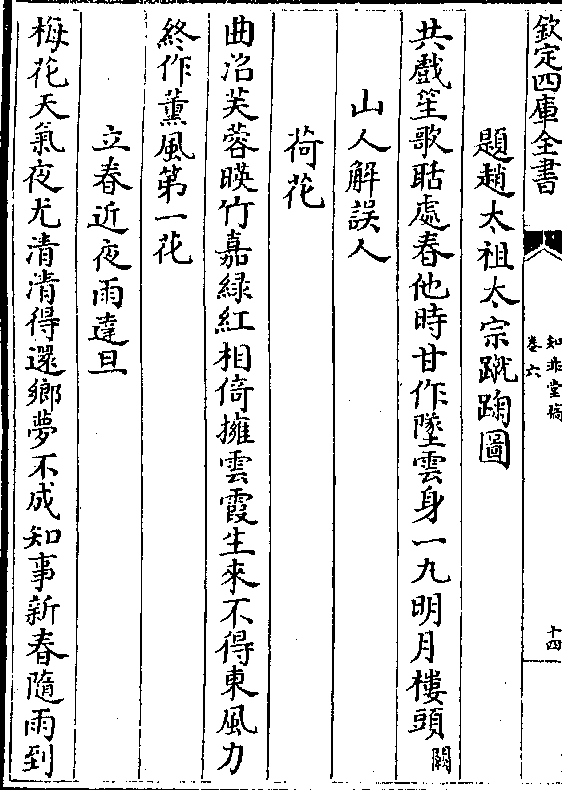 欽定四庫全書
知非堂稿
卷六
十四
題趙太祖太宗蹴踘圖
共戲笙歌聒處春他時甘作墜雲身一九明月樓頭闕
山人解誤人
荷花
曲沼芙蓉暎竹嘉緑紅相倚擁雲霞生來不得東風力
終作薰風第一花
立春近夜雨達旦
梅花天氣夜尤清清得還鄉夢不成知事新春隨雨到